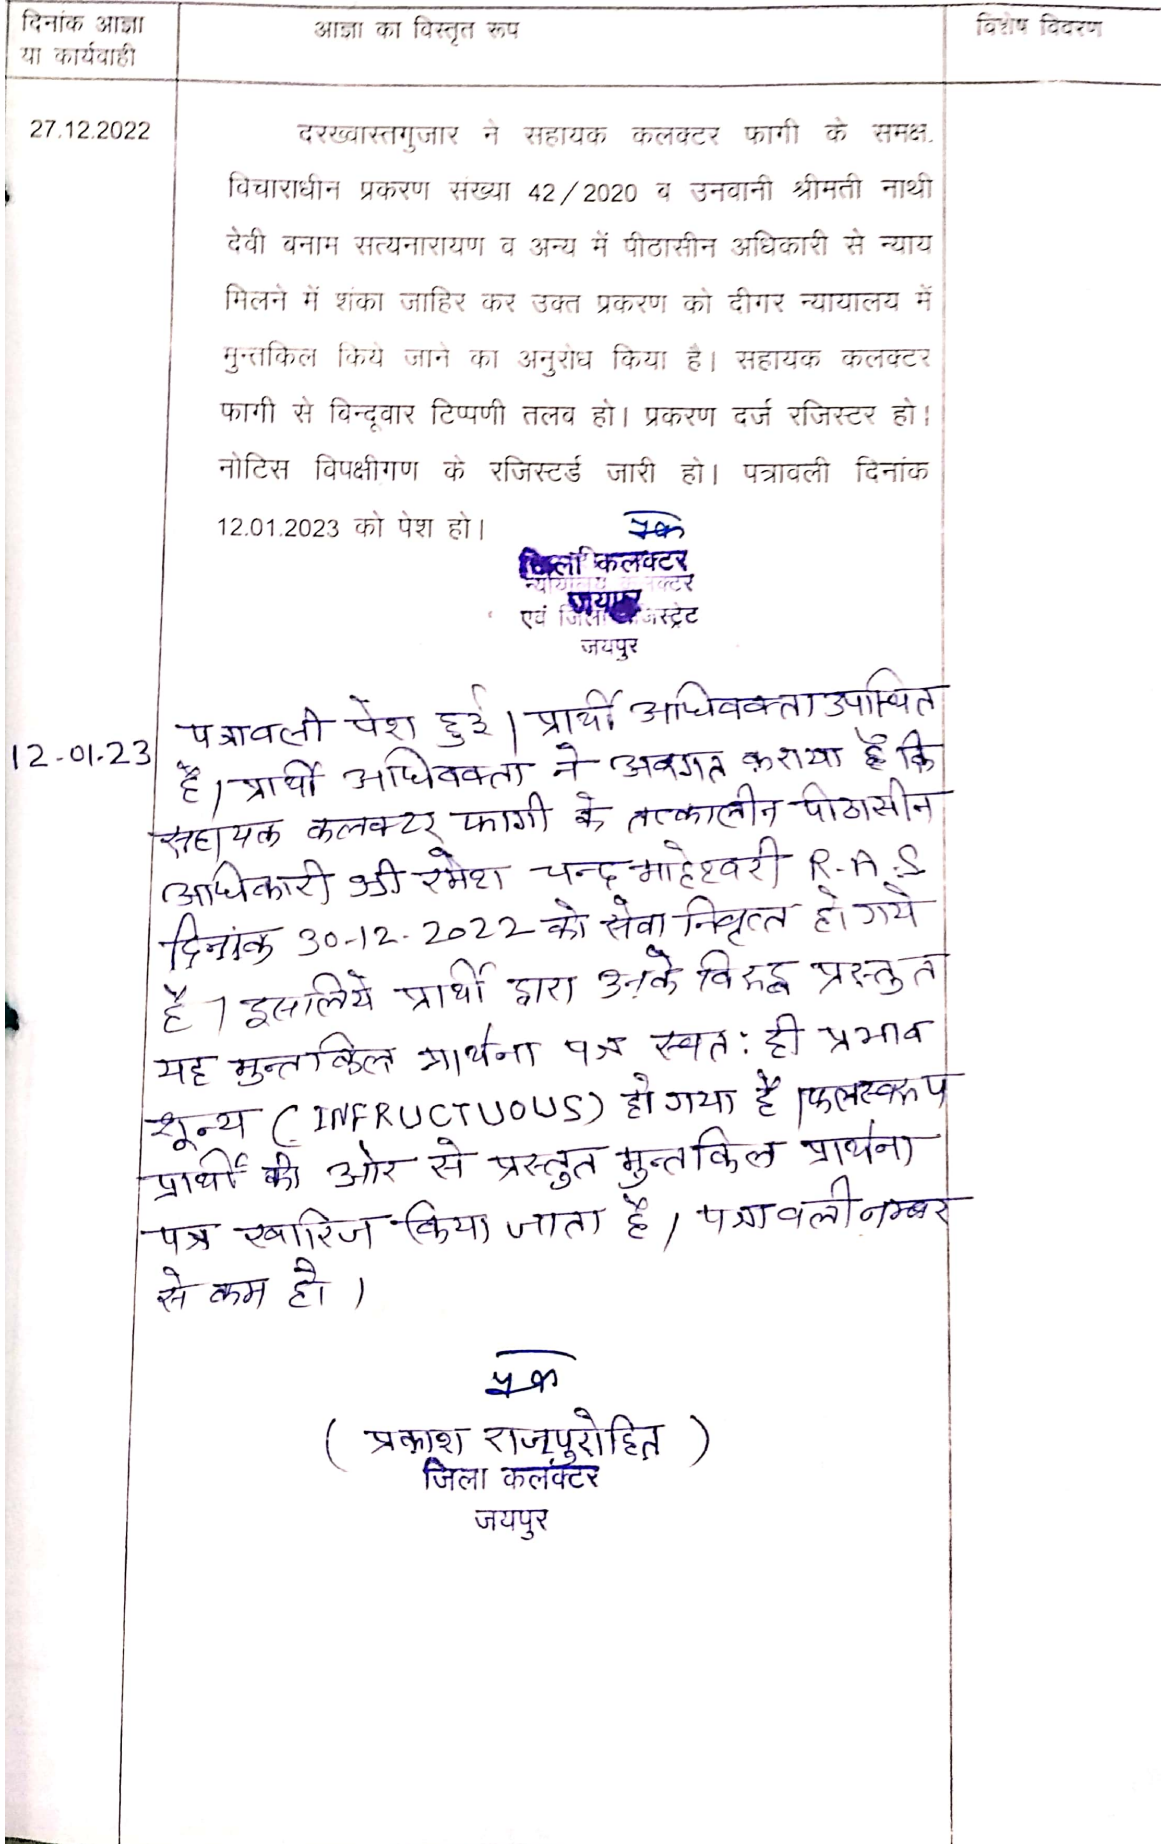 दिनांक आज्ञा
या कार्यवाही
आज्ञा का विस्तृत रूप
विशेष विवरण
27.12.2022
दरख्वास्तगुजार ने सहायक कलक्टर फागी के समक्ष
विचाराधीन प्रकरण संख्या 42/2020 व उनवानी श्रीमती नाथी
देवी बनाम सत्यनारायण व अन्य में पीठासीन अधिकारी से न्याय
मिलने में शंका जाहिर कर उक्त प्रकरण को दीगर न्यायालय में
मुन्तकिल किये जाने का अनुरोध किया है। सहायक कलक्टर
फागी से बिन्दूवार टिप्पणी तलब हो। प्रकरण दर्ज रजिस्टर हो।
नोटिस विपक्षीगण के रजिस्टर्ड जारी हो। पत्रावली दिनांक
12.01.2023 को पेश हो।
जिला कलक्टर
जयपुर
एवं जिला
जयपुर
12-01-23
पत्रावली पेश हुई। प्रार्थी अधिवक्ता उपस्थित
है। प्रार्थी अधिवक्ता ने अवगत कराया है कि
सहायक कलक्टर फागी के तत्कालीन पीठासीन
अधिकारी श्री रमेश चन्द माहेश्वरी R.A.S
दिनांक 30-12-2022 को सेवा निवृत्त हो गये
है। इसलिये प्रार्थी द्वारा उनके विरुद्ध प्रस्तुत
यह मुन्तकिल प्रार्थना पत्र स्वत: ही प्रभाव
शून्य (INFRUCTUOUS) हो गया है। फलस्वरूप
प्रार्थी की ओर से प्रस्तुत मुन्तकिल प्रार्थना
पत्र खारिज किया जाता है। पत्रावली नम्बर
से कम हो।
( प्रकाश राजपुरोहित )
जिला कलक्टर
जयपुर